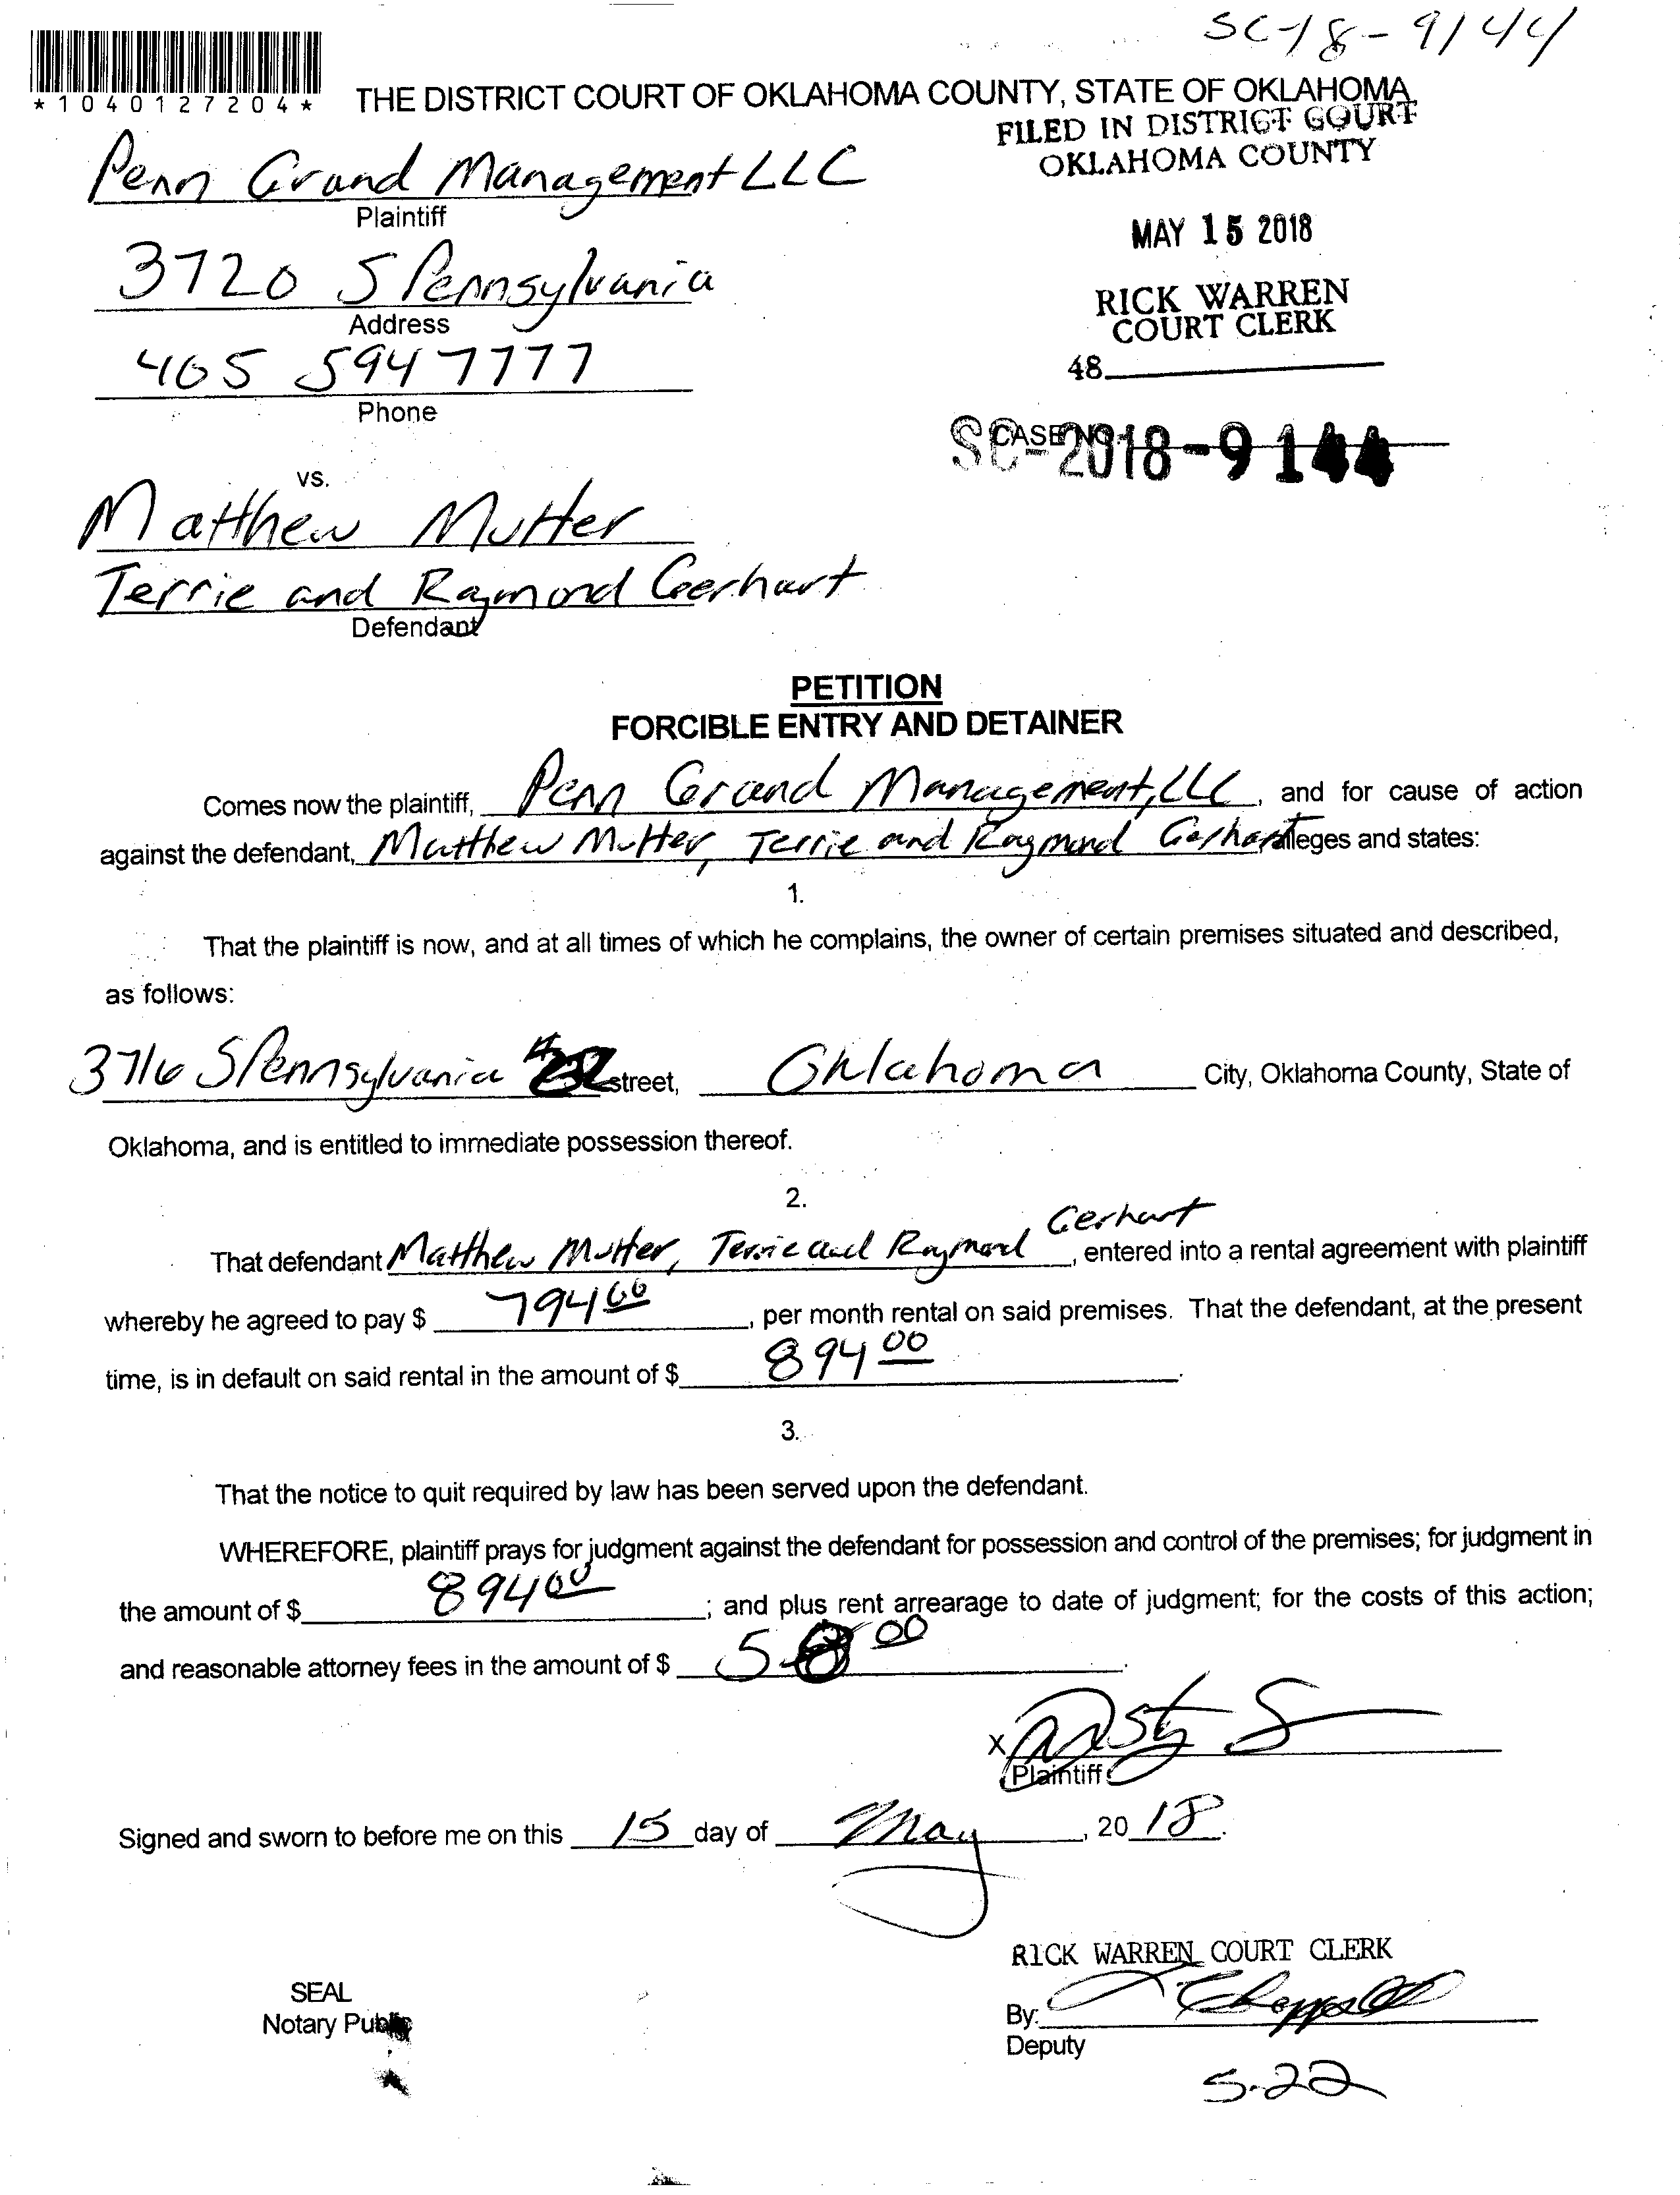 SC-18-9144
*1040127204*
THE DISTRICT COURT OF OKLAHOMA COUNTY, STATE OF OKLAHOMA
FILED IN DISTRICT COURT
OKLAHOMA COUNTY
Penn Grand Management LLC
Plaintiff
MAY 15 2018
3720 S Pennsylvania
Address
RICK WARREN
COURT CLERK
405 594 7777
Phone
48
CASE NO.
SC-2018-9144
vs.
Matthew Mutter
Terrie and Raymond Gerhart
Defendant
PETITION
FORCIBLE ENTRY AND DETAINER
Comes now the plaintiff, Penn Grand Management, LLC, and for cause of action
against the defendant, Matthew Mutter, Terrie and Raymond Gerhart alleges and states:
1.
That the plaintiff is now, and at all times of which he complains, the owner of certain premises situated and described,
as follows:
3716 S Pennsylvania # street, Oklahoma City, Oklahoma County, State of
Oklahoma, and is entitled to immediate possession thereof.
2.
That defendant Matthew Mutter, Terrie and Raymond Gerhart, entered into a rental agreement with plaintiff
whereby he agreed to pay $ 794 00, per month rental on said premises. That the defendant, at the present
time, is in default on said rental in the amount of $ 894 00.
3.
That the notice to quit required by law has been served upon the defendant.
WHEREFORE, plaintiff prays for judgment against the defendant for possession and control of the premises; for judgment in
the amount of $ 894 00; and plus rent arrearage to date of judgment; for the costs of this action;
and reasonable attorney fees in the amount of $ 00.
X
Plaintiff
Signed and sworn to before me on this 15 day of May, 20 18.
RICK WARREN COURT CLERK
SEAL
Notary Public
By:
Deputy
5-22